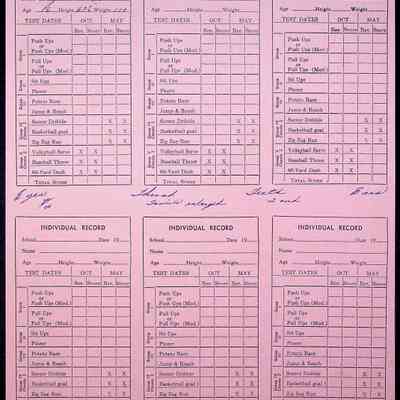 Age 16 Height Weight Age Height Weight Age Height Weight
TEST DATES OCT MAY TEST DATES OCT MAY TEST DATES OCT MAY
Rec. Score Rec. Score Rec. Score Rec. Score Rec. Score Rec. Score
Push Ups Push Ups Push Ups
or or or
Push Ups (Mod.) Push Ups (Mod.) Push Ups (Mod.)
Pull Ups Pull Ups Pull Ups
or or or
Pull Ups (Mod.) Pull Ups (Mod.) Pull Ups (Mod.)
Sit Ups Sit Ups Sit Ups
Potato Race Potato Race Potato Race
Jump & Reach Jump & Reach Jump & Reach
Soccer Dribble X X Soccer Dribble X X Soccer Dribble X X
Basketball goal X X Basketball goal X X Basketball goal X X
Zig Zag Run X X Zig Zag Run X X Zig Zag Run X X
Volleyball Serve X X Volleyball Serve X X Volleyball Serve X X
Baseball Throw X X Baseball Throw X X Baseball Throw X X
60-Yard Dash X X 60-Yard Dash X X 60-Yard Dash X X
TOTAL SCORE TOTAL SCORE TOTAL SCORE
Eyes Throat Teeth Ears
INDIVIDUAL RECORD INDIVIDUAL RECORD INDIVIDUAL RECORD
School Date 19 School Date 19 School Date 19
Name Name Name
Age Height Weight Age Height Weight Age Height Weight
TEST DATES OCT MAY TEST DATES OCT MAY TEST DATES OCT MAY
Rec. Score Rec. Score Rec. Score Rec. Score Rec. Score Rec. Score
Push Ups Push Ups Push Ups
or or or
Push Ups (Mod.) Push Ups (Mod.) Push Ups (Mod.)
Pull Ups Pull Ups Pull Ups
or or or
Pull Ups (Mod.) Pull Ups (Mod.) Pull Ups (Mod.)
Sit Ups Sit Ups Sit Ups
Potato Race Potato Race Potato Race
Jump & Reach Jump & Reach Jump & Reach
Soccer Dribble X X Soccer Dribble X X Soccer Dribble X X
Basketball goal X X Basketball goal X X Basketball goal X X
Zig Zag Run X X Zig Zag Run X X Zig Zag Run X X